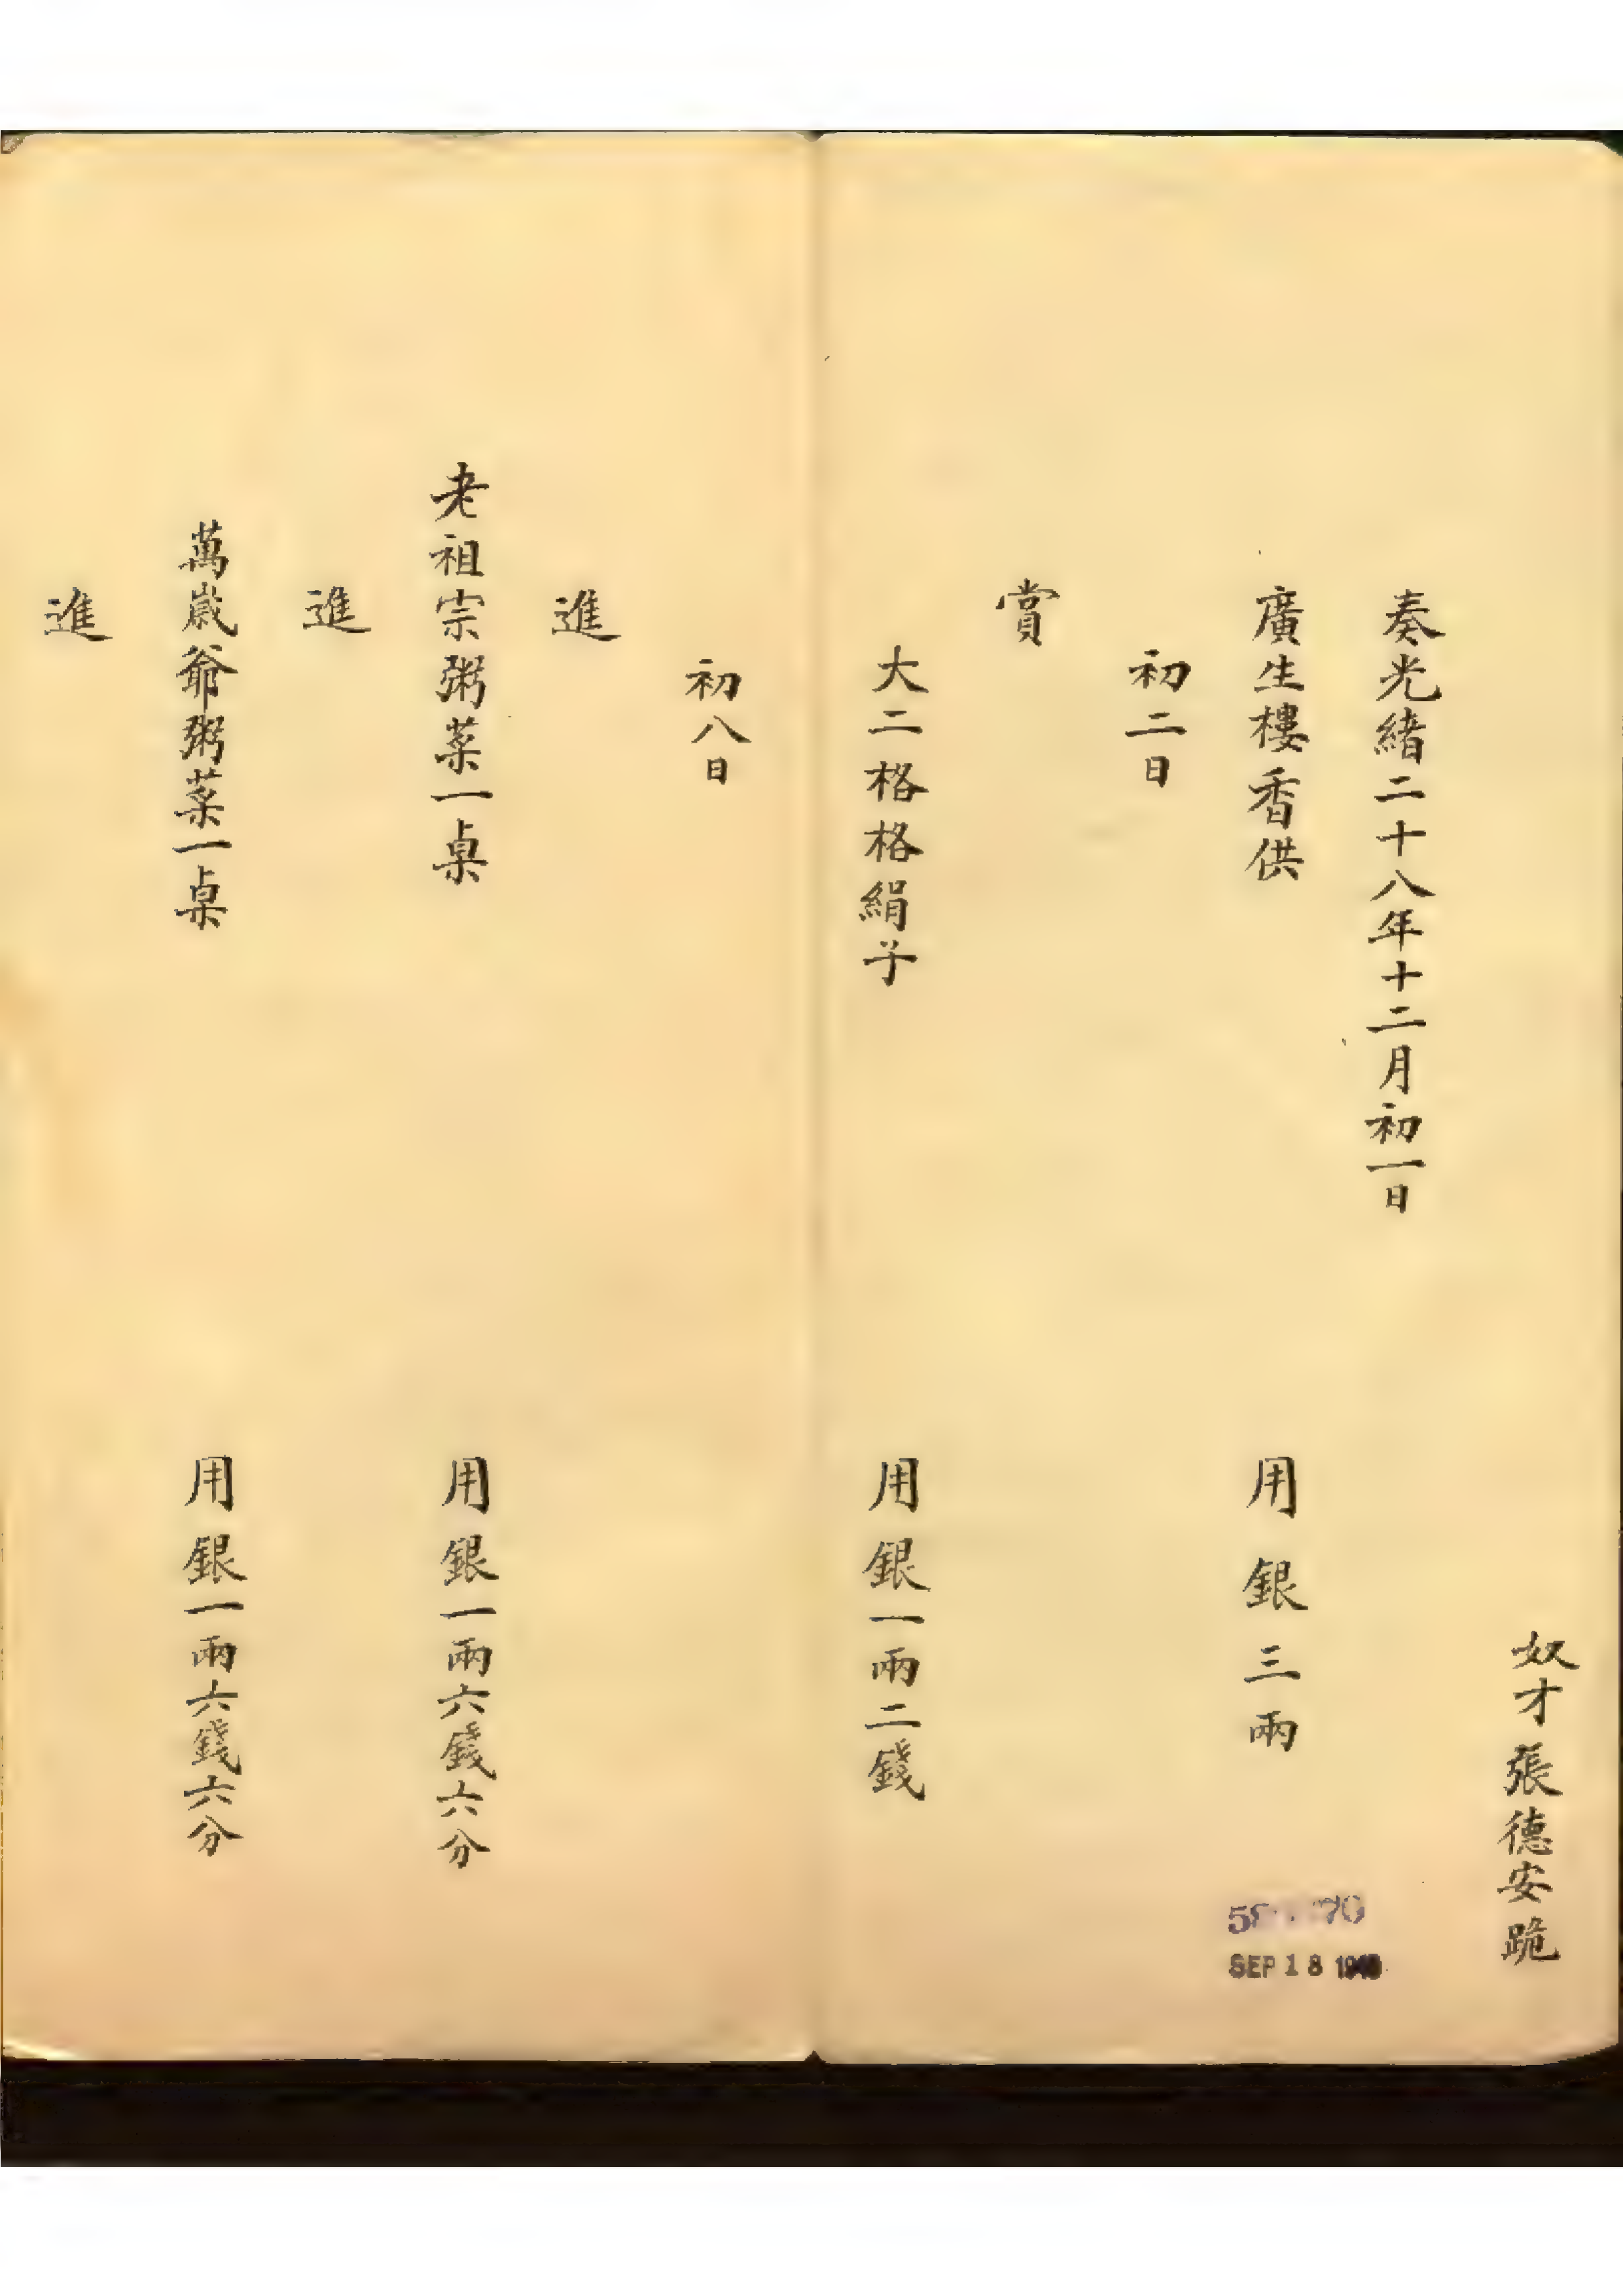 奴才張德安跪
奏光緒二十八年十二月初一日
廣生樓香供 用銀三兩
初二日
賞
大二格格絹子 用銀一兩二錢
初八日
進
老祖宗粥菜一桌 用銀一兩六錢六分
進
萬歲爺粥菜一桌 用銀一兩六錢六分
進
SEP 18